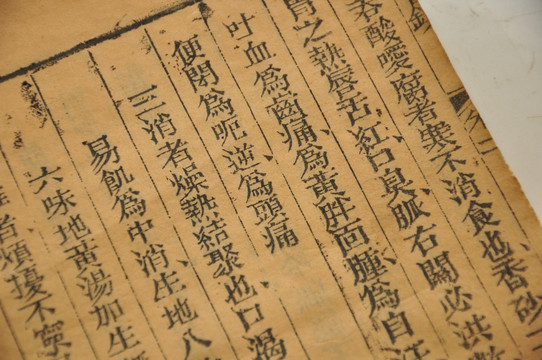 吞酸噯腐者不消食也香砂
胃之熱唇舌紅口臭脈右關必洪
吐血為齒痛為黃胖面腫為自汗
便閉為呃逆為頭痛
三消者燥熱結聚也口渴
易飢為中消生地八
六味地黃湯加生
者煩擾不寧